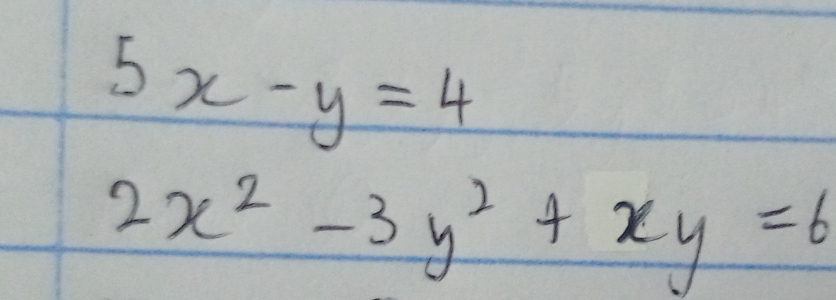 5x - y = 4
2x² - 3y² + xy = 6